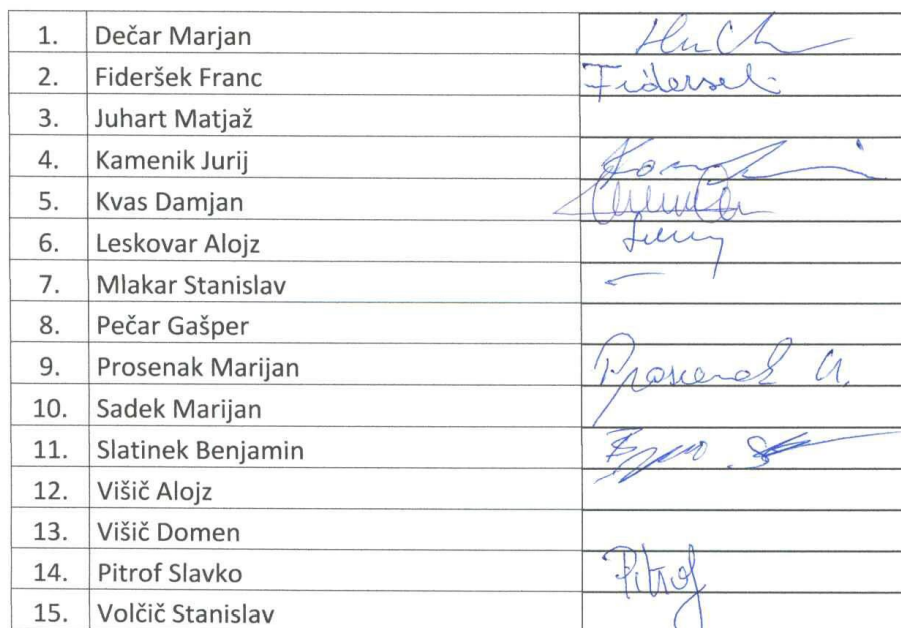 1. Dečar Marjan
2. Fideršek Franc Fideršek
3. Juhart Matjaž
4. Kamenik Jurij
5. Kvas Damjan
6. Leskovar Alojz
7. Mlakar Stanislav
8. Pečar Gašper
9. Prosenak Marijan Prosenak M.
10. Sadek Marijan
11. Slatinek Benjamin
12. Višič Alojz
13. Višič Domen
14. Pitrof Slavko Pitrof
15. Volčič Stanislav